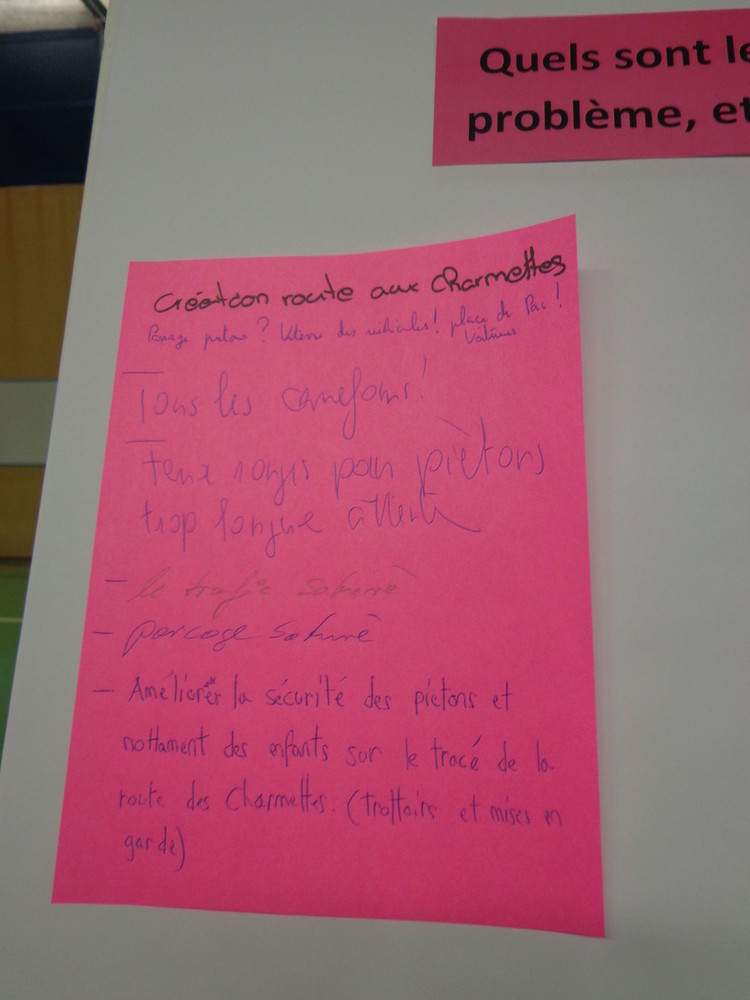 Quels sont le
problème, et
Création route aux Charmettes
Passage pietons ? Vitesse des véhicules ! place de Parc !
Voitures
Tous les carrefours !
Feux rouges pour piètons
trop longue attente
- le trafic saturé
- parcage saturé
- Améliorer la sécurité des piétons et
nottament des enfants sur le tracé de la
route des Charmettes. (trottoirs et mises en
garde)